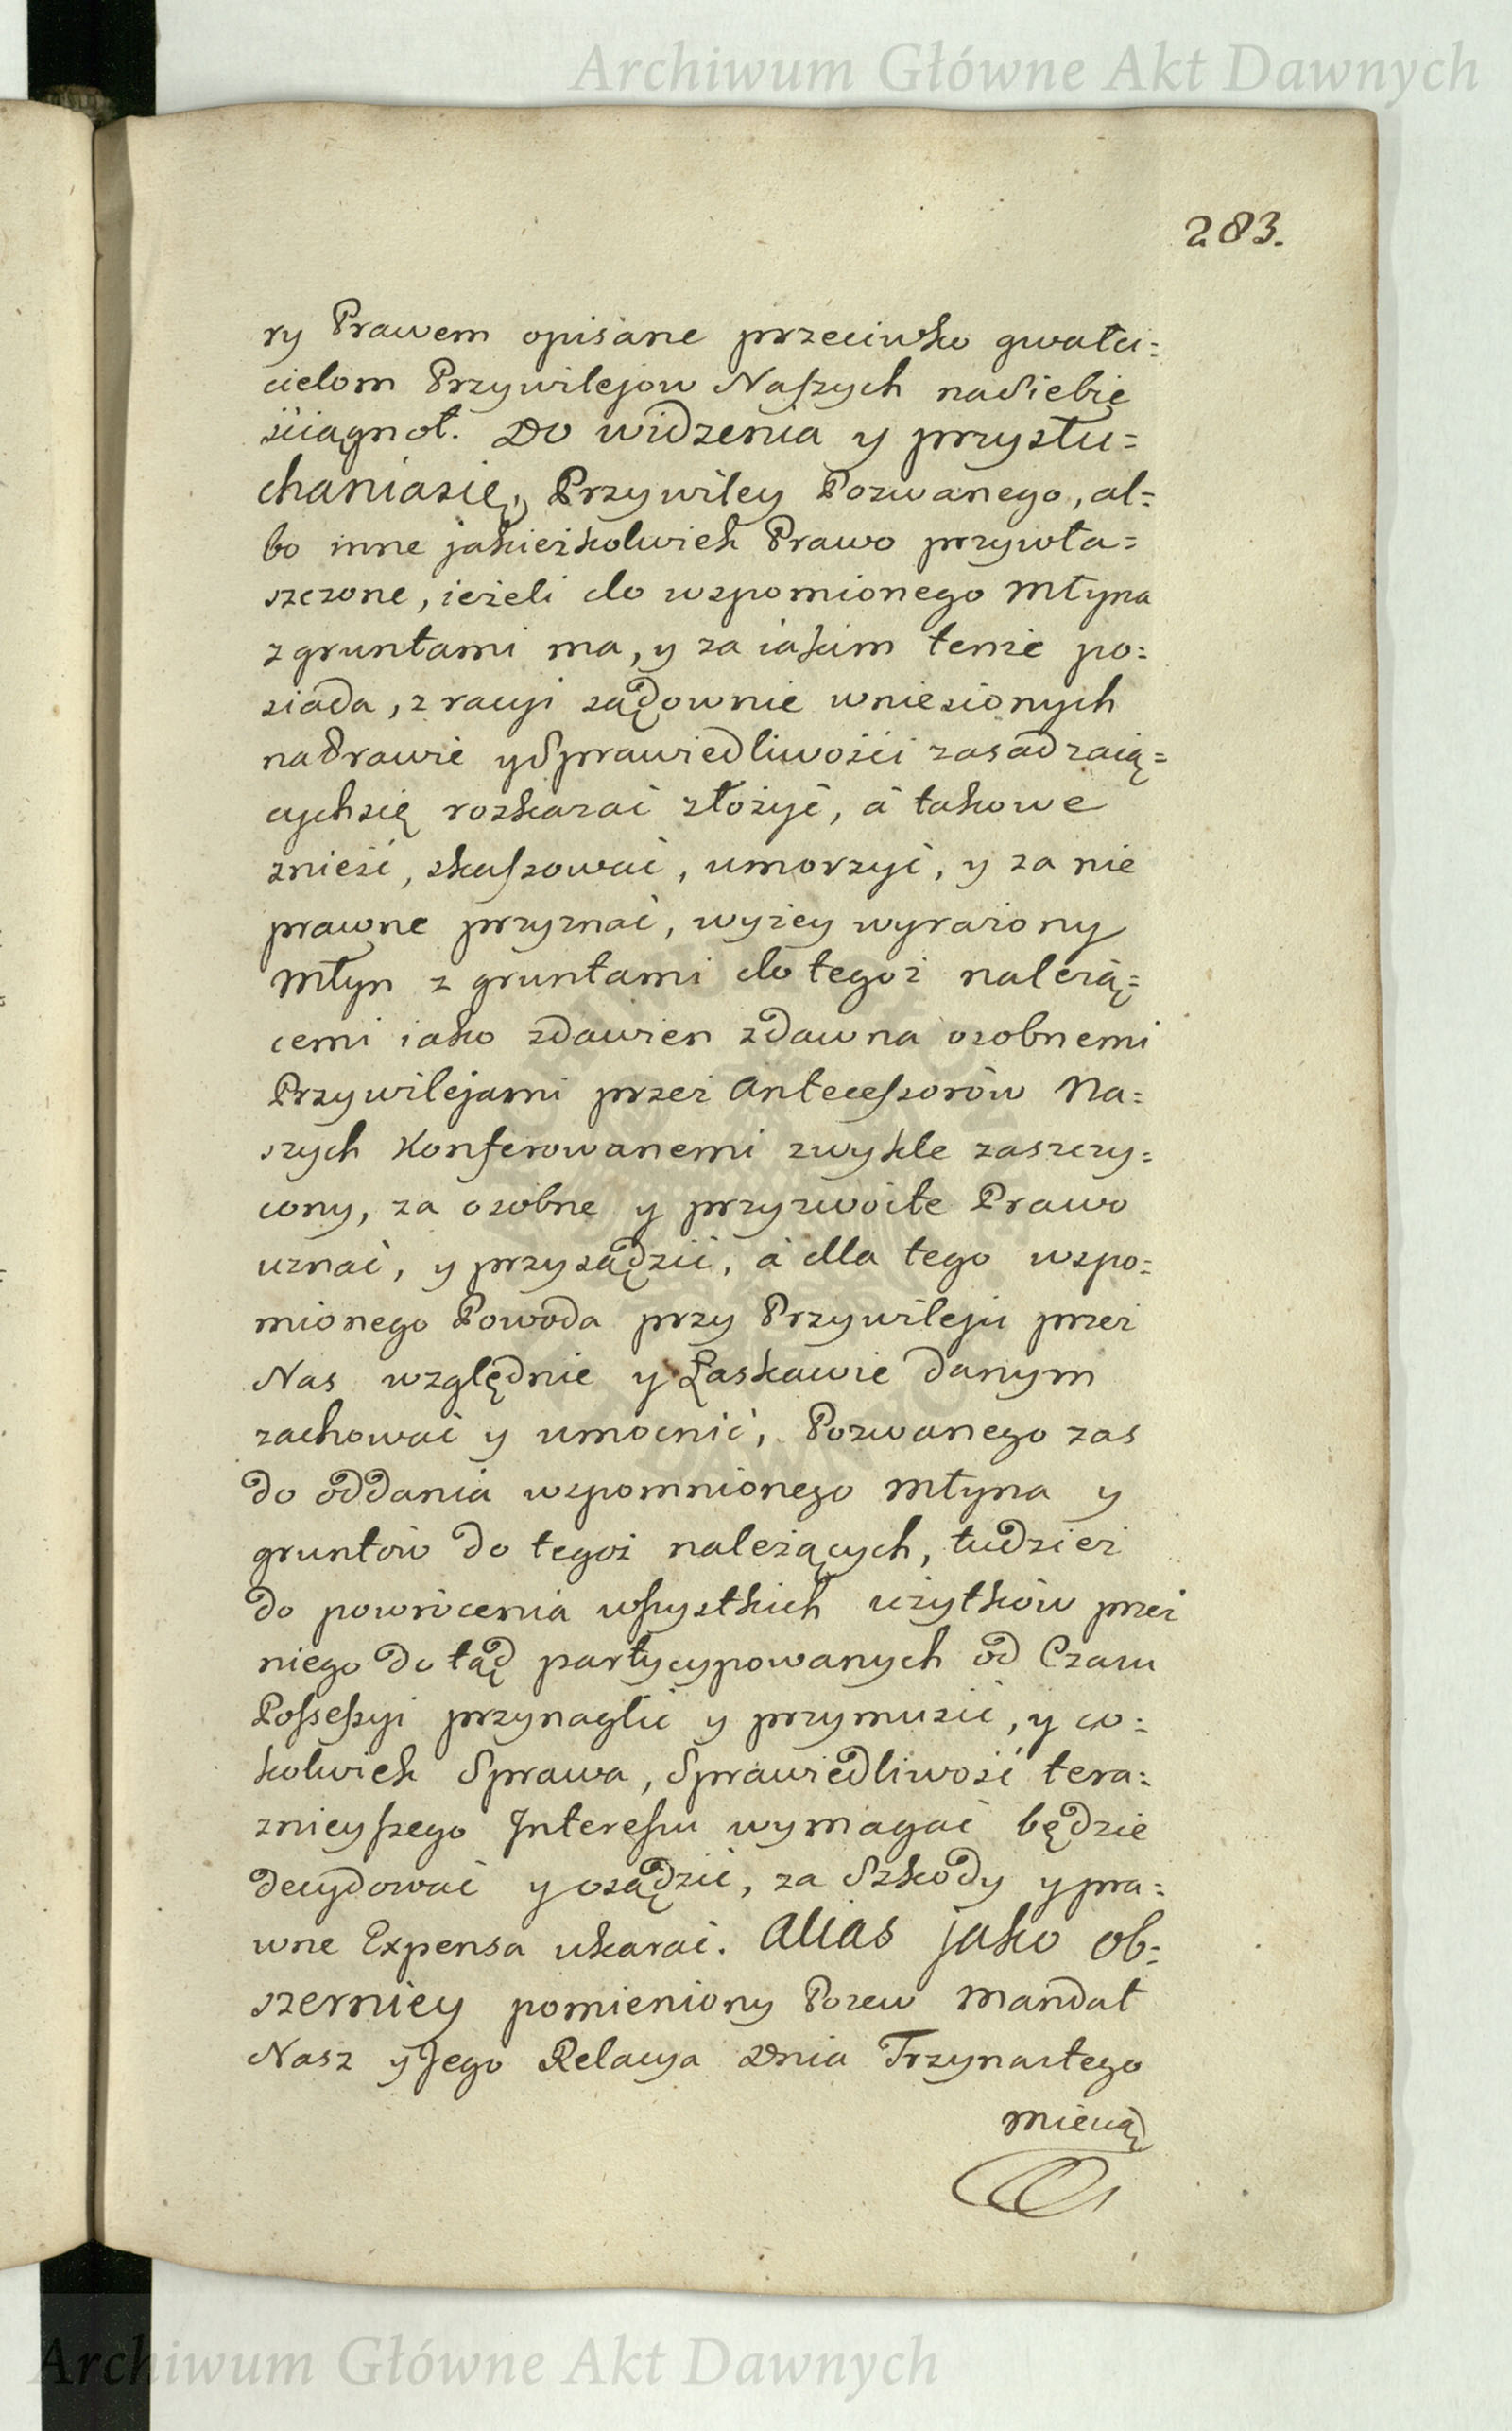 Archiwum Główne Akt Dawnych
283.
ry Prawem opisane przeciwko gwałci=
cielom Przywilejow Naſzych naSiebie
sciągnoł. Do widzenia y przysłu=
chaniasię, Przywiley Pozwanego, al=
bo inne jakieżkolwiek Prawo przywła=
szczone, ieżeli do wspomionego Młyna
z gruntami ma, y za iakim tenże po=
siada, z racyi sądownie wniesionych
naPrawie ySprawiedliwości zasadzaią=
cychsię rozkazać złożyć, á takowe
znieść, skaſsować, umorzyć, y za nie
prawne przyznać, wyżey wyrażony
Młyn z gruntami do tegoż należą=
cemi iako zdawien zdawna osobnemi
Przywilejami przez Anteceſsorów Na=
szych Konferowanemi zwykle zaszczy=
cony, za osobne y przyzwoite Prawo
uznać, y przysądzić, á dla tego wspo=
mionego Powoda przy Przywileju przez
Nas względnie y Łaskawie danym
zachować y umocnić, Pozwanego zas
do oddania wspomnionego Młyna y
gruntów do tegoż należących, tudzież
do powrócenia wſzystkich użytków przez
niego dotąd partycypowanych od Czasu
Poſseſsyi przynaglić y przymusić, y co=
kolwiek Sprawa, Sprawiedliwość tera=
znieyſzego Intereſsu wymagać będzie
decydować y osądzić, za Szkody y pra=
wne Expensa ukarać. Alias jako ob=
szerniey pomieniony Pozew Mandat
Nasz y Jego Relacya Dnia Trzynastego
Miecią
Archiwum Główne Akt Dawnych